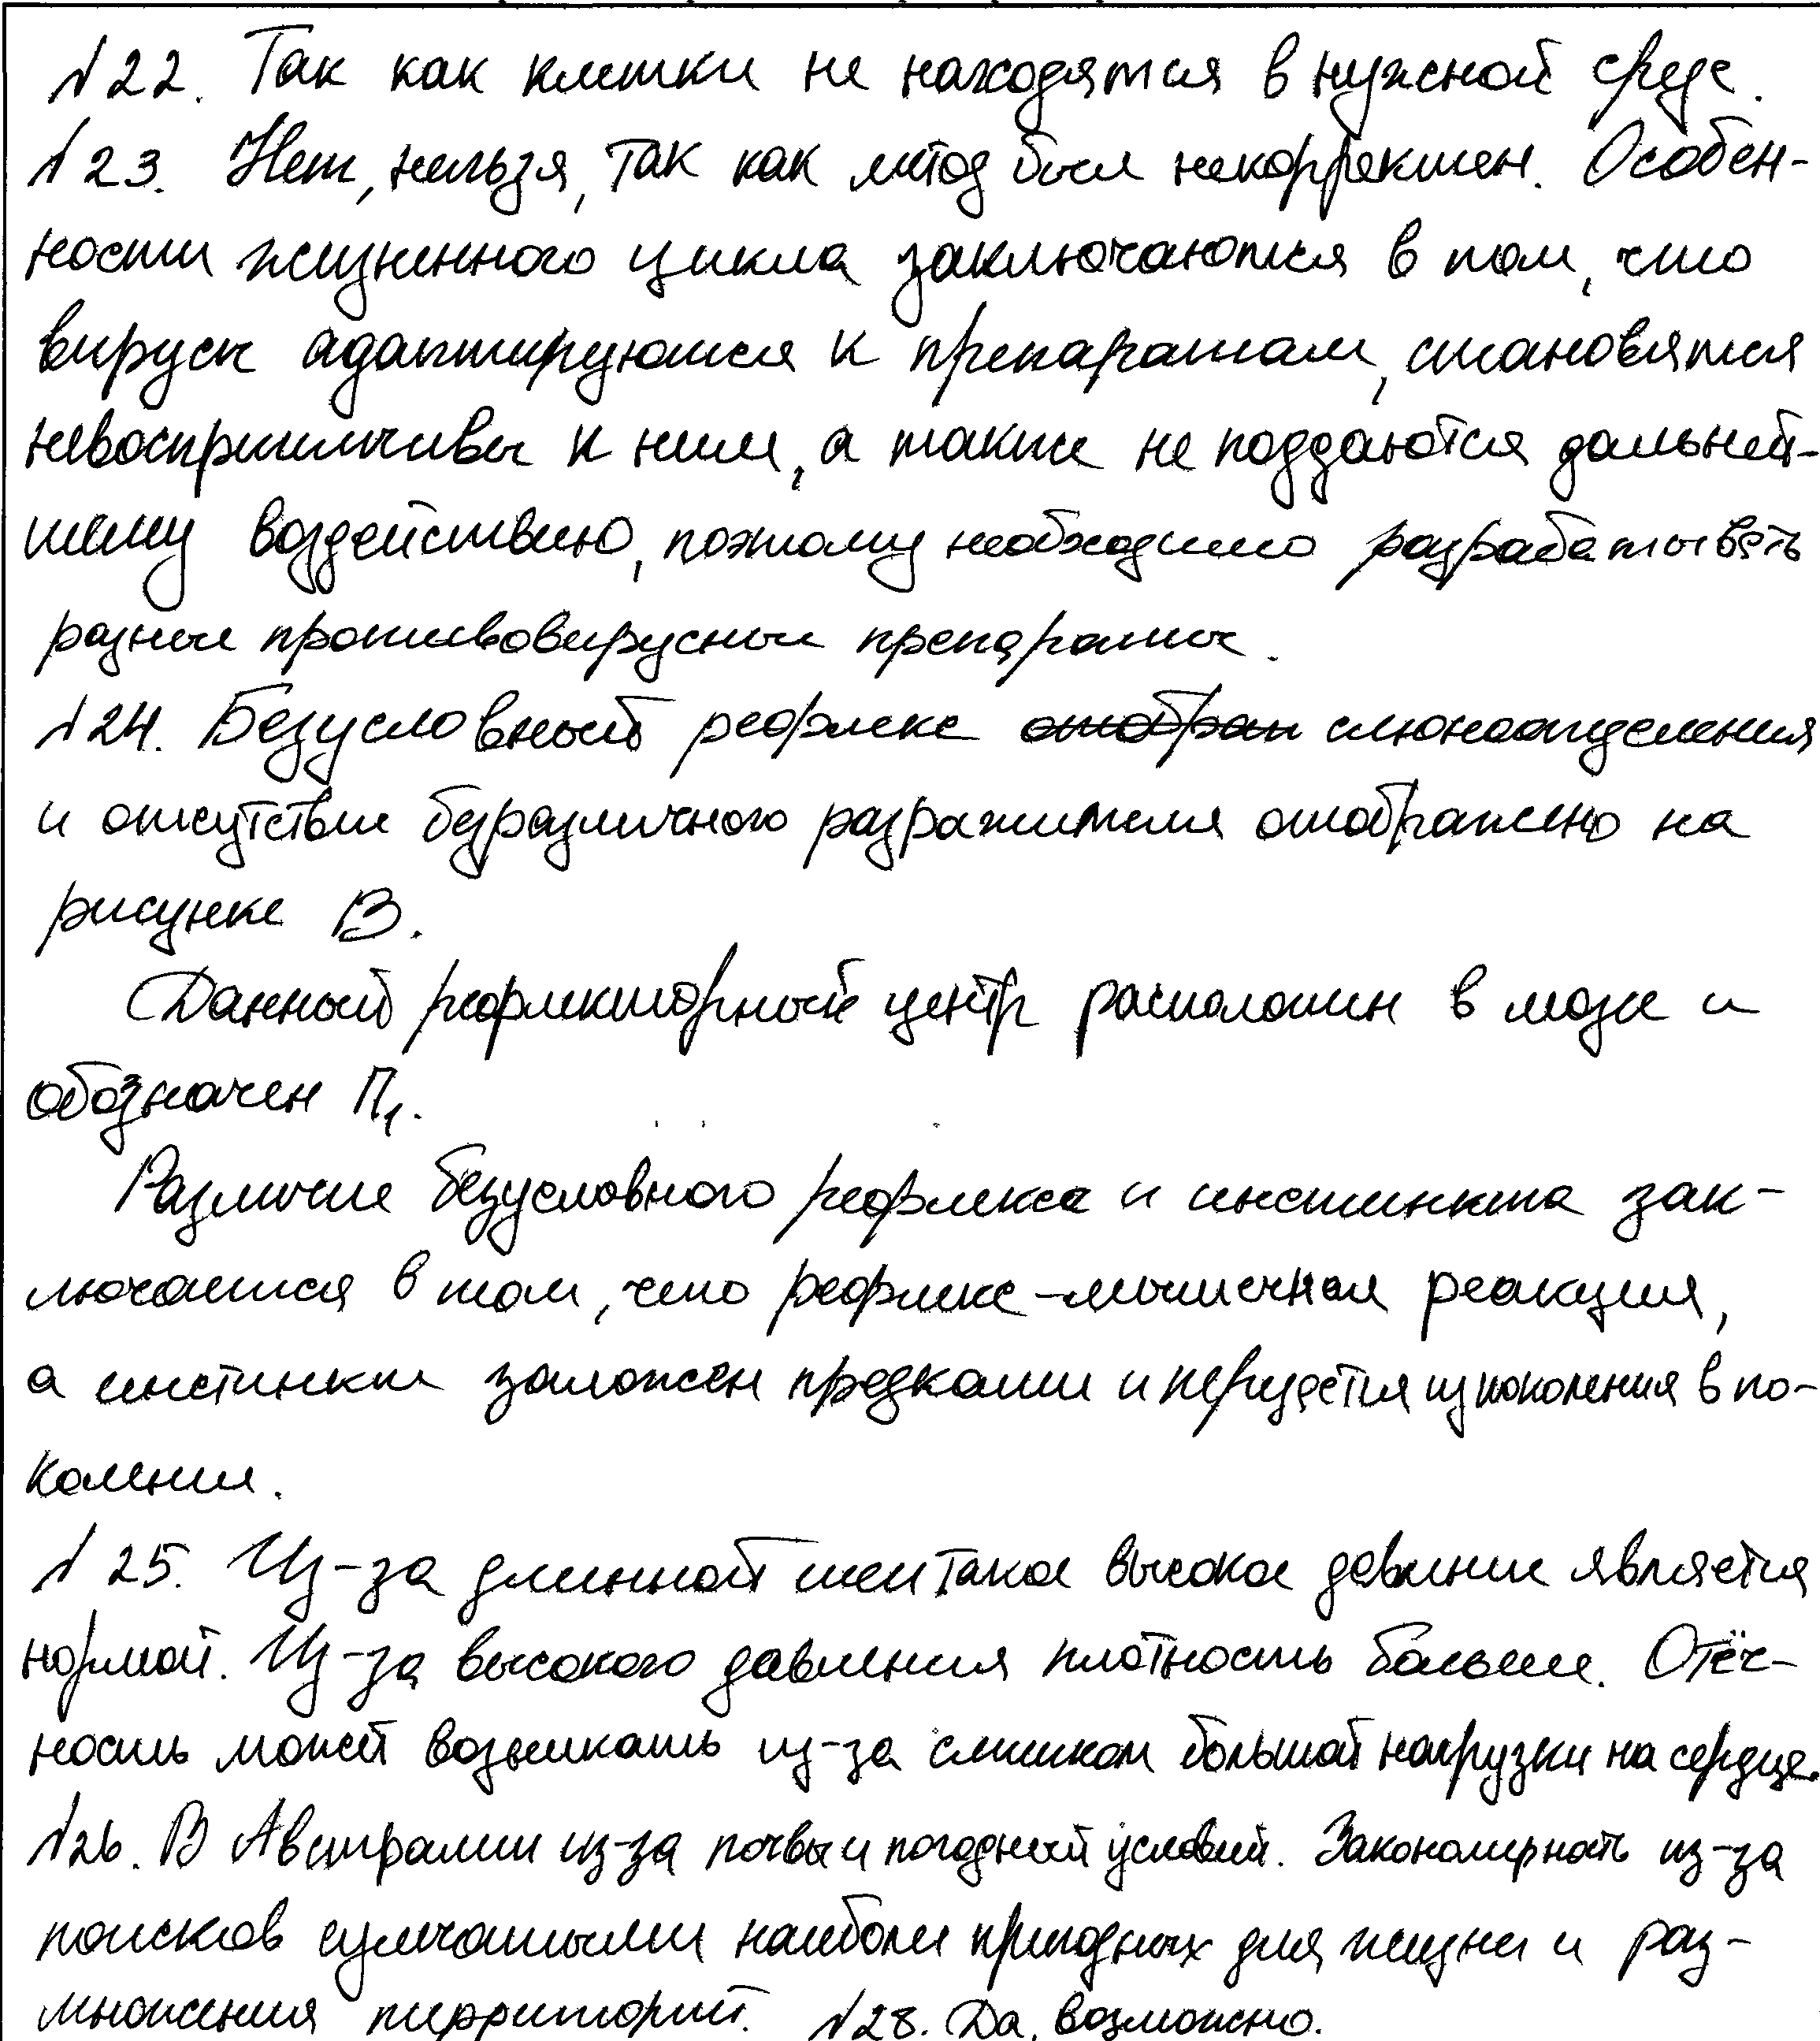 №22. Так как клетки не находятся в нужной среде.
№23. Нет, нельзя, так как метод был некорректен. Особен-
ности жизненного цикла заключаются в том, что
вирусы адаптируются к препаратам, становятся
невосприимчивы к ним, а также не поддаются дальней-
шему воздействию, поэтому необходимо разрабатывать
разные противовирусные препараты.
№24. Безусловный рефлекс отобран слюноотделения
и отсутствие безразличного разражителя отображено на
рисунке В.
Данный рефлекторный центр расположен в мозге и
обозначен П1.
Различие безусловного рефлекса и инстинкта зак-
лючается в том, что рефлекс - мышечная реакция,
а инстинкт заложен предками и передаётся из поколения в по-
коление.
№25. Из-за длинной шеи такое высокое давление является
нормой. Из-за высокого давления плотность больше. Отёч-
ность может возникать из-за слишком большой нагрузки на сердце.
№26. В Австралии из-за почвы и погодных условий. Закономерность из-за
поисков сумчатыми наиболее пригодных для жизни и раз-
множения территорий. №28. Да, возможно.